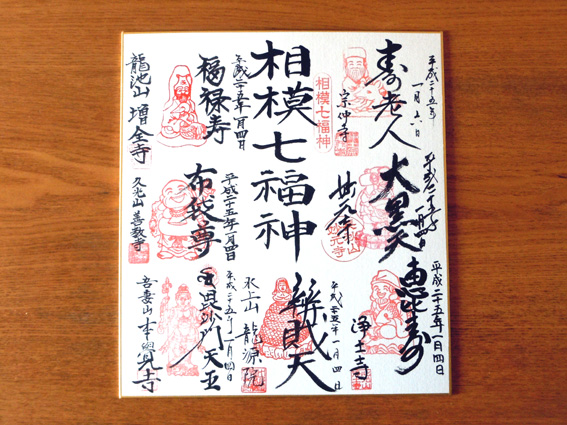 平成二十五年
一月六日
寿老人
宗仲寺
大黒天
妙元寺
平成二十五年一月四日
恵比寿
浄土寺
相模七福神
相模七福神
平成二十五年一月四日
辨財天
水上山 龍源院
平成二十五年一月四日
福禄寿
龍池山 増全寺
平成二十五年一月四日
布袋尊
善教寺
平成二十五年一月四日
毘沙門天王
吾妻山 本覺寺